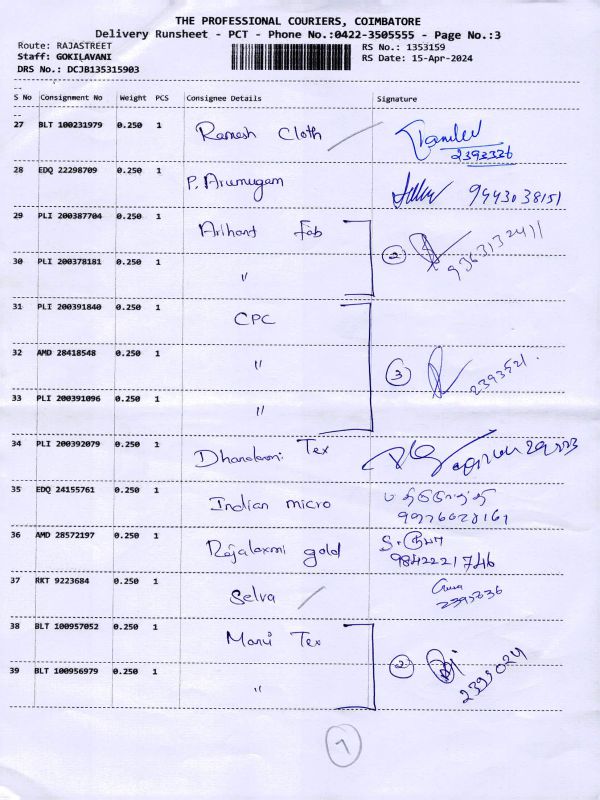 THE PROFESSIONAL COURIERS, COIMBATORE
Delivery Runsheet - PCT - Phone No.:0422-3505555 - Page No.:3
Route: RAJASTREET RS No.: 1353159
Staff: GOKILAVANI RS Date: 15-Apr-2024
DRS No.: DCJB135315903
S No Consignment No Weight PCS Consignee Details Signature
27 BLT 100231979 0.250 1 Ramesh Cloth
2393326
28 EDQ 22298709 0.250 1 P. Arumugam 9443038151
29 PLI 200387704 0.250 1 Arihant Fab
2
30 PLI 200378181 0.250 1 "
31 PLI 200391840 0.250 1 CPC
32 AMD 28418548 0.250 1 "
3 2393521
33 PLI 200391096 0.250 1 "
34 PLI 200392079 0.250 1 Dhanalaxmi Tex
35 EDQ 24155761 0.250 1 Indian micro
36 AMD 28572197 0.250 1 Rajalaxmi gold
9842221746
37 RKT 9223684 0.250 1 Selva
38 BLT 100957052 0.250 1 Manü Tex
2
39 BLT 100956979 0.250 1 "
7